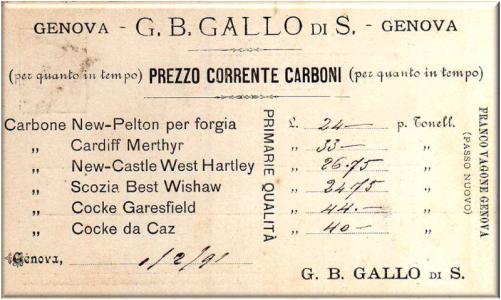 GENOVA - G. B. GALLO DI S. - GENOVA
(per quanto in tempo) PREZZO CORRENTE CARBONI (per quanto in tempo)
Carbone New-Pelton per forgia £. 24— p. Tonell.
„ Cardiff Merthyr „ 33— „
„ New-Castle West Hartley „ 26.75 „
„ Scozia Best Wishaw „ 24.75 „
„ Cocke Garesfield „ 44.— „
„ Cocke da Caz „ 40— „
PRIMARIE QUALITÀ
FRANCO VAGONE GENOVA
(PASSO NUOVO)
Genova, 1/2/91
G. B. GALLO DI S.